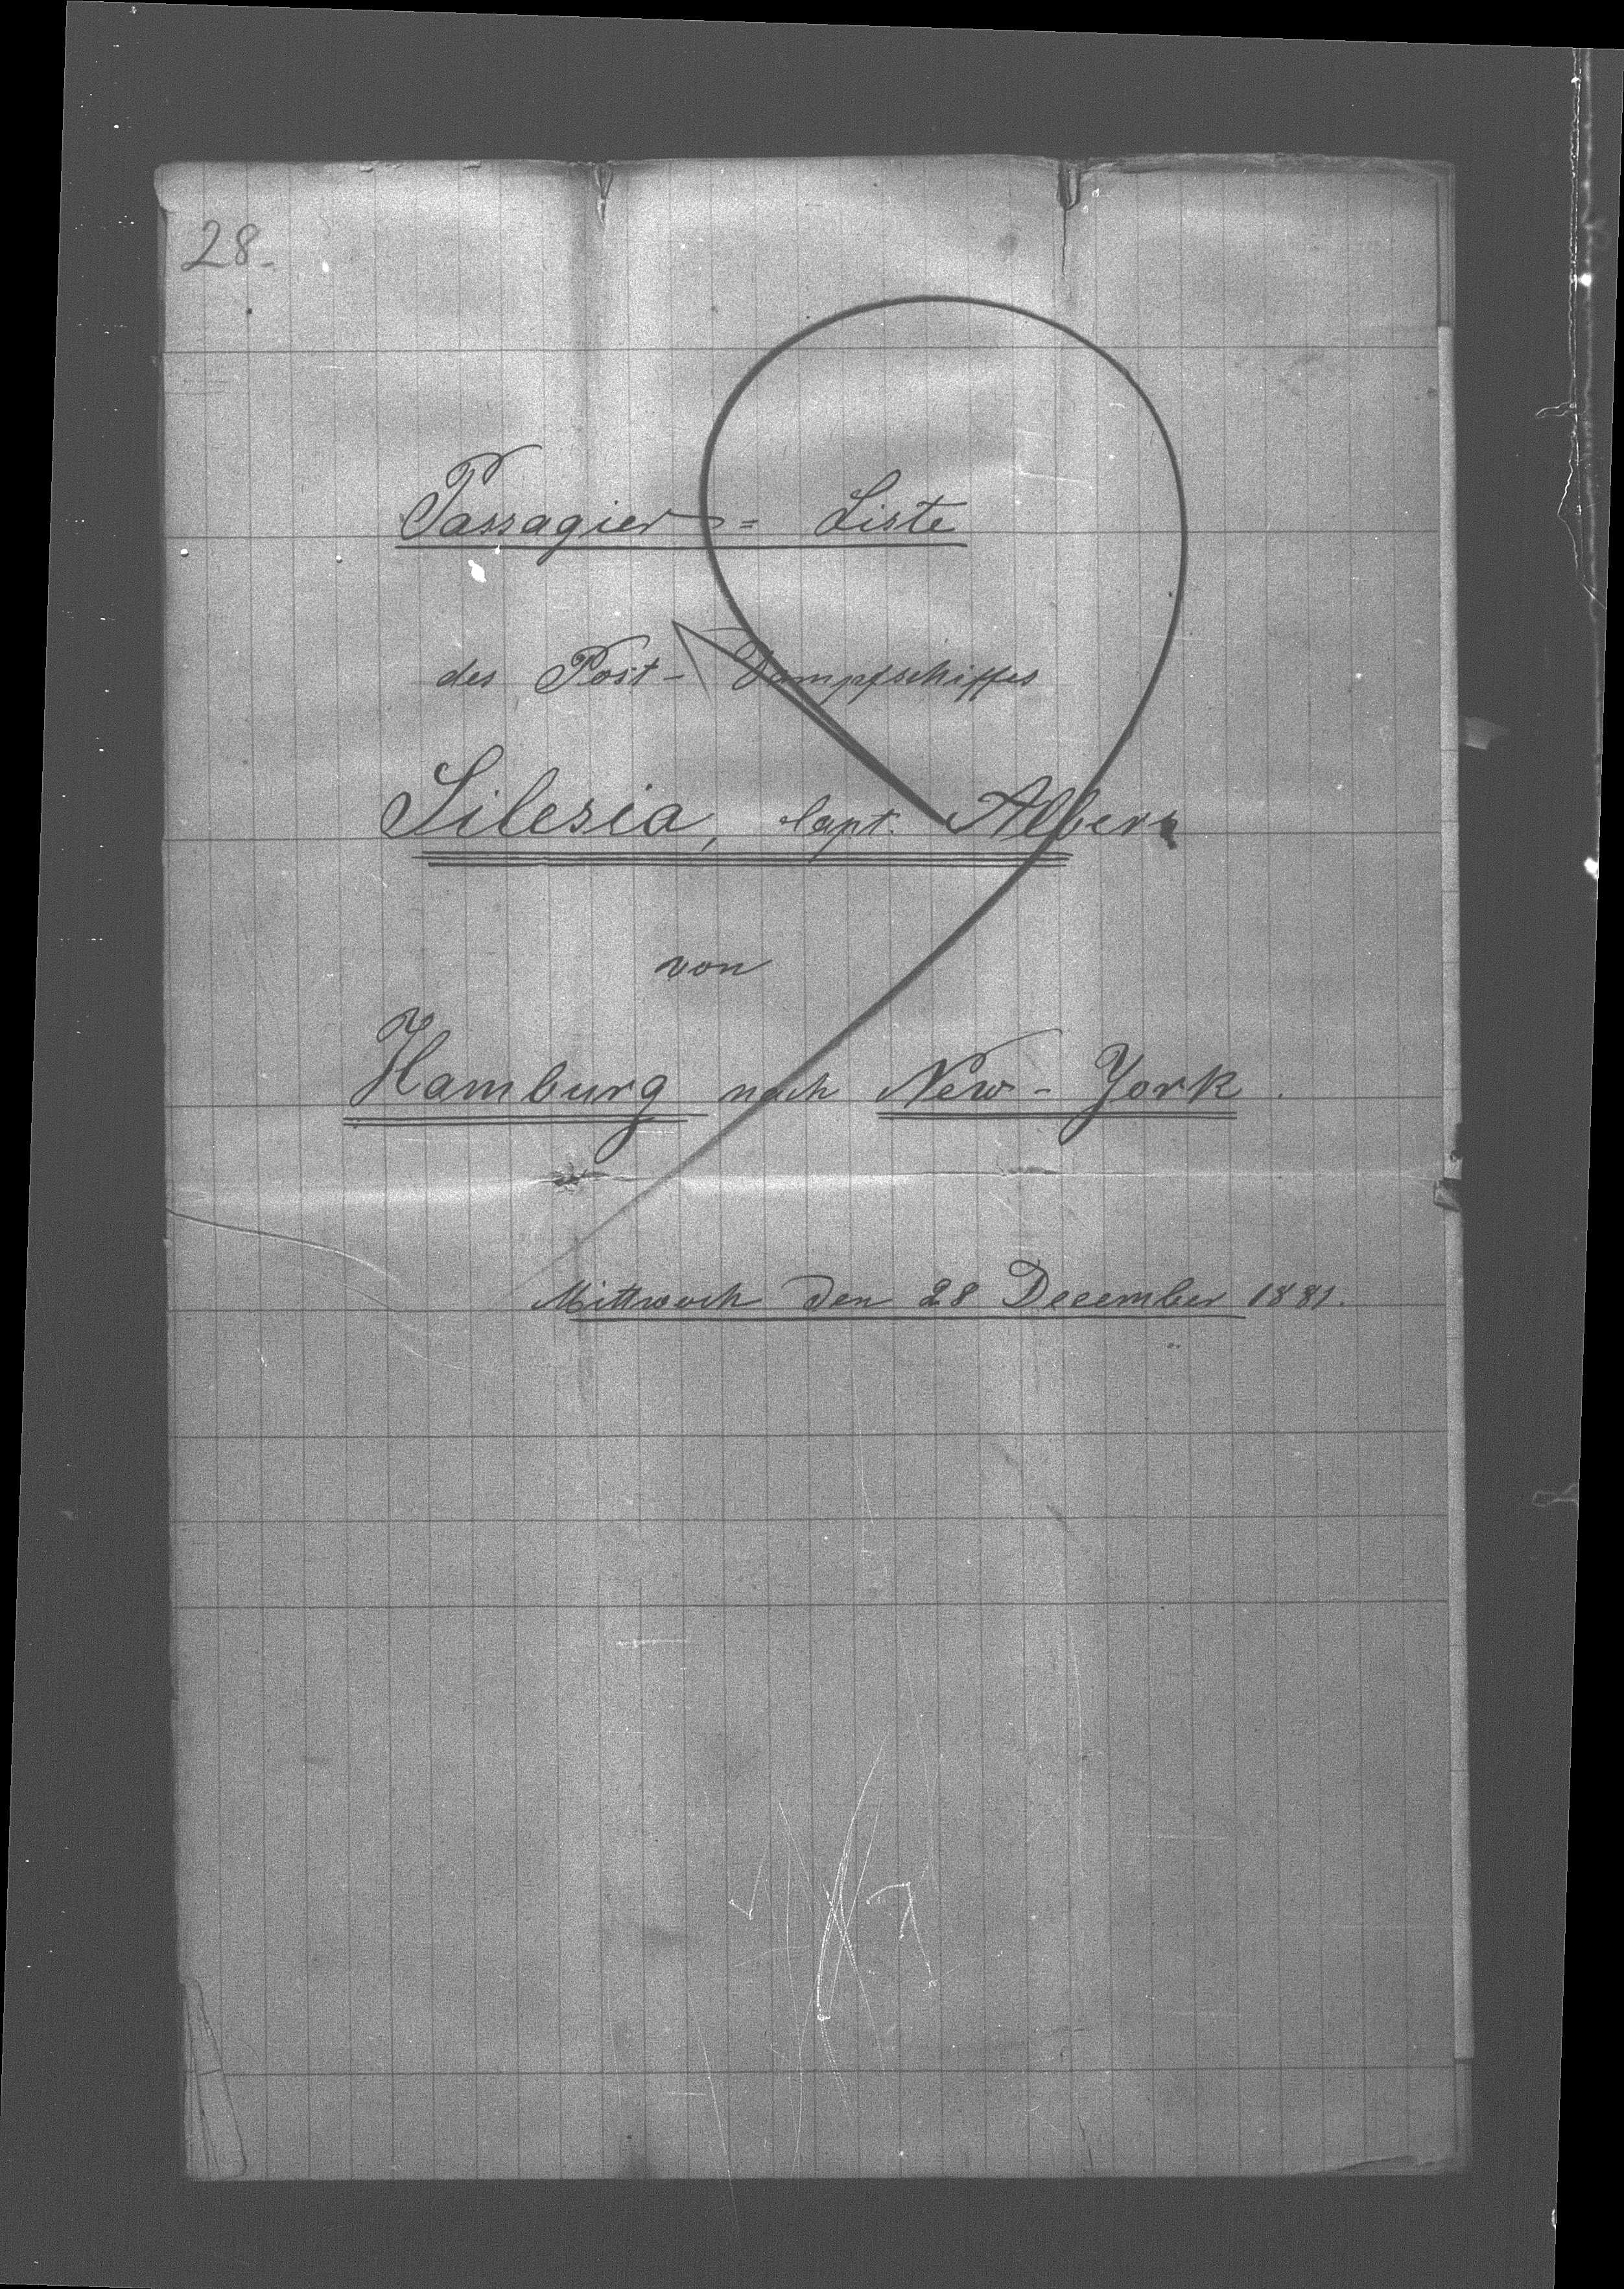 28.
Passagier = Liste
des Post - Dampfschiffes
Silesia, Capt. Albers
von
Hamburg nach New - York.
Mittwoch den 28 December 1881.